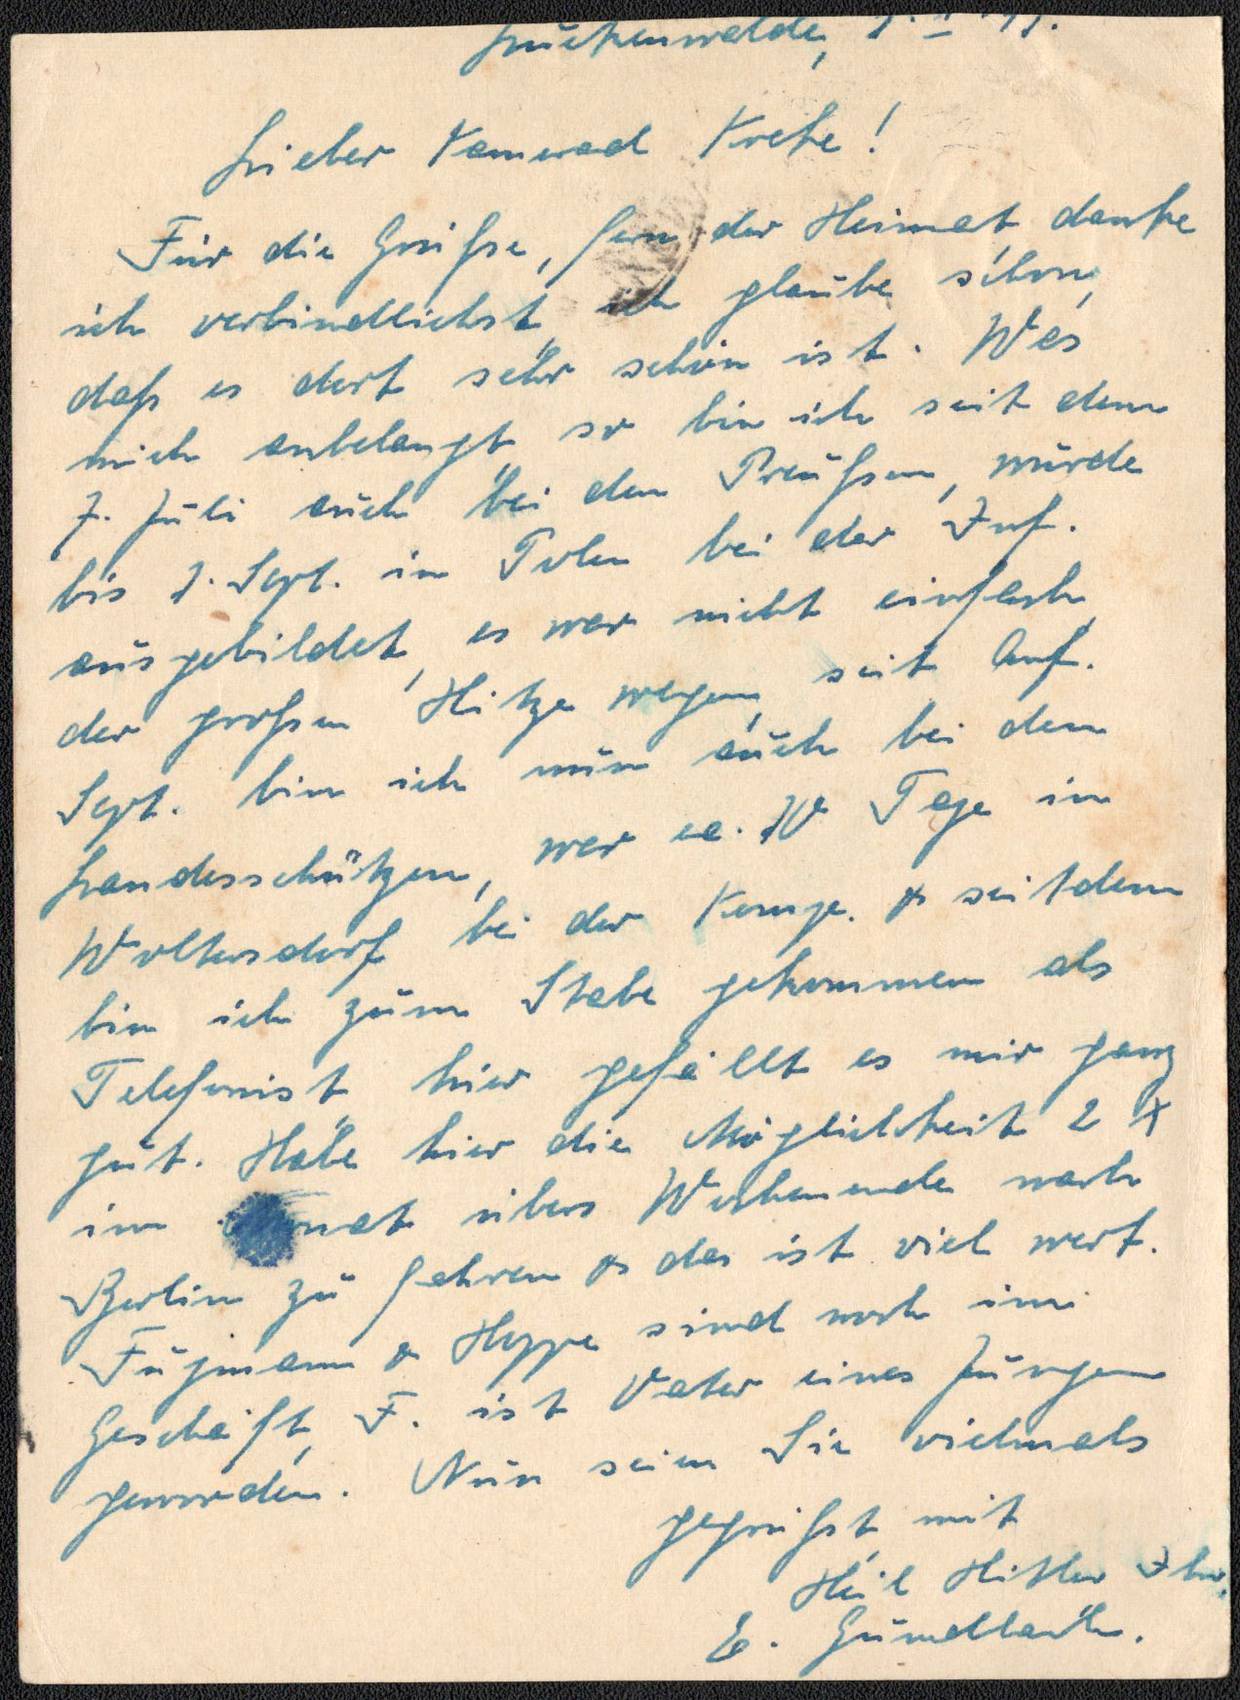 Luckenwalde,
Lieber Kamerad Krehe!
Für die Grüße, fern der Heimat danke
ich verbindlichst, ich glaube schon,
daß es dort sehr schön ist. Was
mich anbelangt, so bin ich seit dem
7. Juli auch bei den Preußen, wurde
bis 1. Sept. in Polen bei der Inf.
ausgebildet, es war nicht einfach,
der großen Hitze wegen, seit Anf.
Sept. bin ich nun auch bei den
Landesschützen, war ca. 10 Tage in
Woltersdorf bei der Komp. & seitdem
bin ich zum Stabe gekommen als
Telefonist hier gefällt es mir ganz
gut. Habe hier die Möglichkeit 2 X
im Monat übers Wochenende nach
Berlin zu fahren & das ist viel wert.
Fugmann & Hoppe sind noch im
Geschäft, F. ist Vater eines Jungen
geworden. Nun seien Sie vielmals
gegrüßt mit
Heil Hitler Ihr.
E. Gundlach.